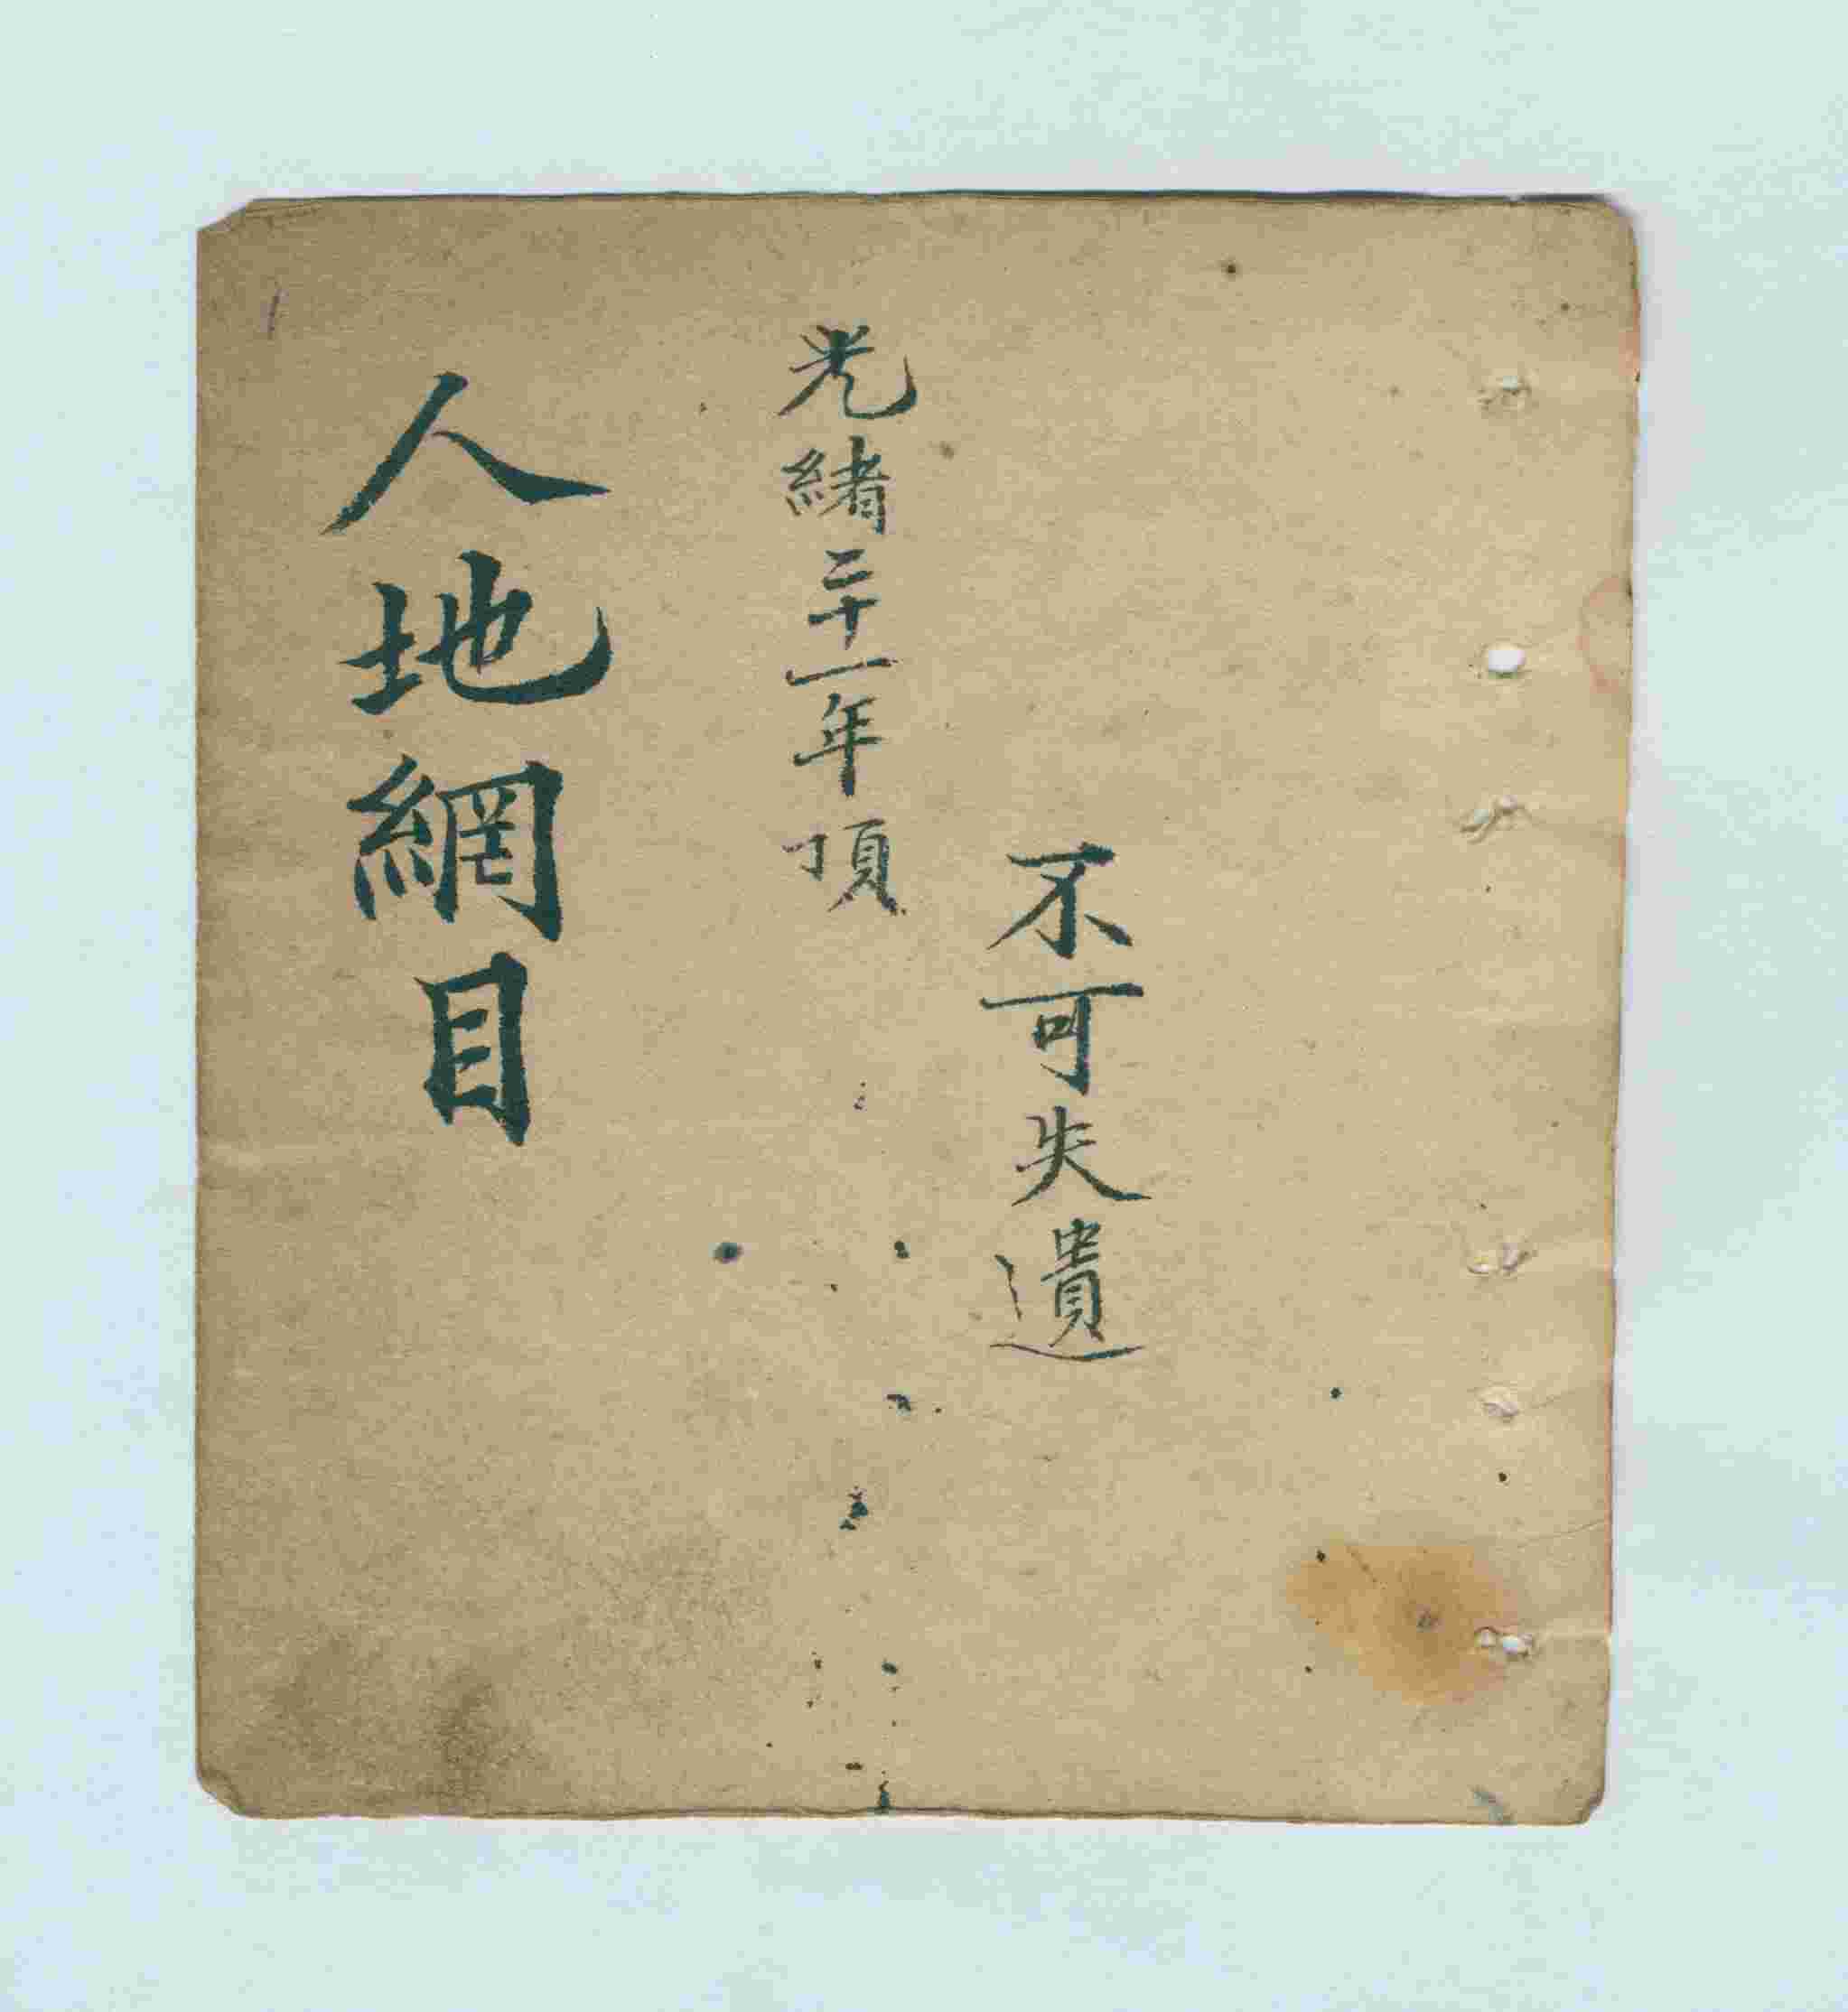 不可失遺
光緒二十一年頂
人地網目